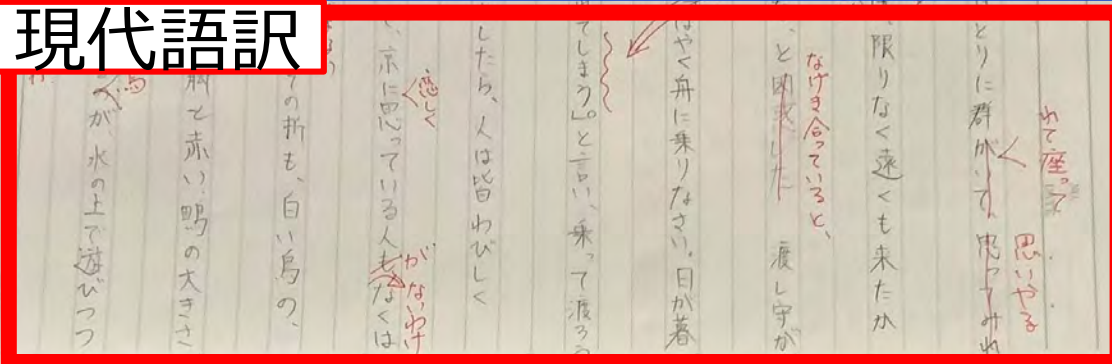 現代語訳
とりに群がいて、思ってみれ
れて座って
思いやる
限りなく遠くも来たか
、と困惑した 渡し守が
なげき合っていると、
はやく舟に乗りなさい。日が暮
てしまう」。と言い、乗って渡ろう
したら、人は皆わびしく
、京に思っている人もなくは
恋しく
がないわけ
の折も、白い鳥の、
と赤い、鴫の大きさ
が、水の上で遊びつつ
鳥